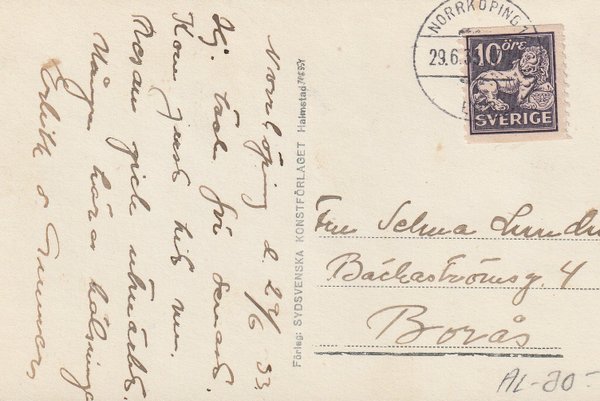 Norrköping d. 29/6 33.
Hej. Tack för senast.
Kom just hit nu.
Resan gick utmärkt.
Många kära hälsningar
Edith o Gunnar
Förlag: SYDSVENSKA KONSTFÖRLAGET Halmstad.
NORRKÖPING 1
29.6.33
10 ÖRE
SVERIGE
Fru Selma Lund
Bäckaströmsg. 4
Borås
AL-20-